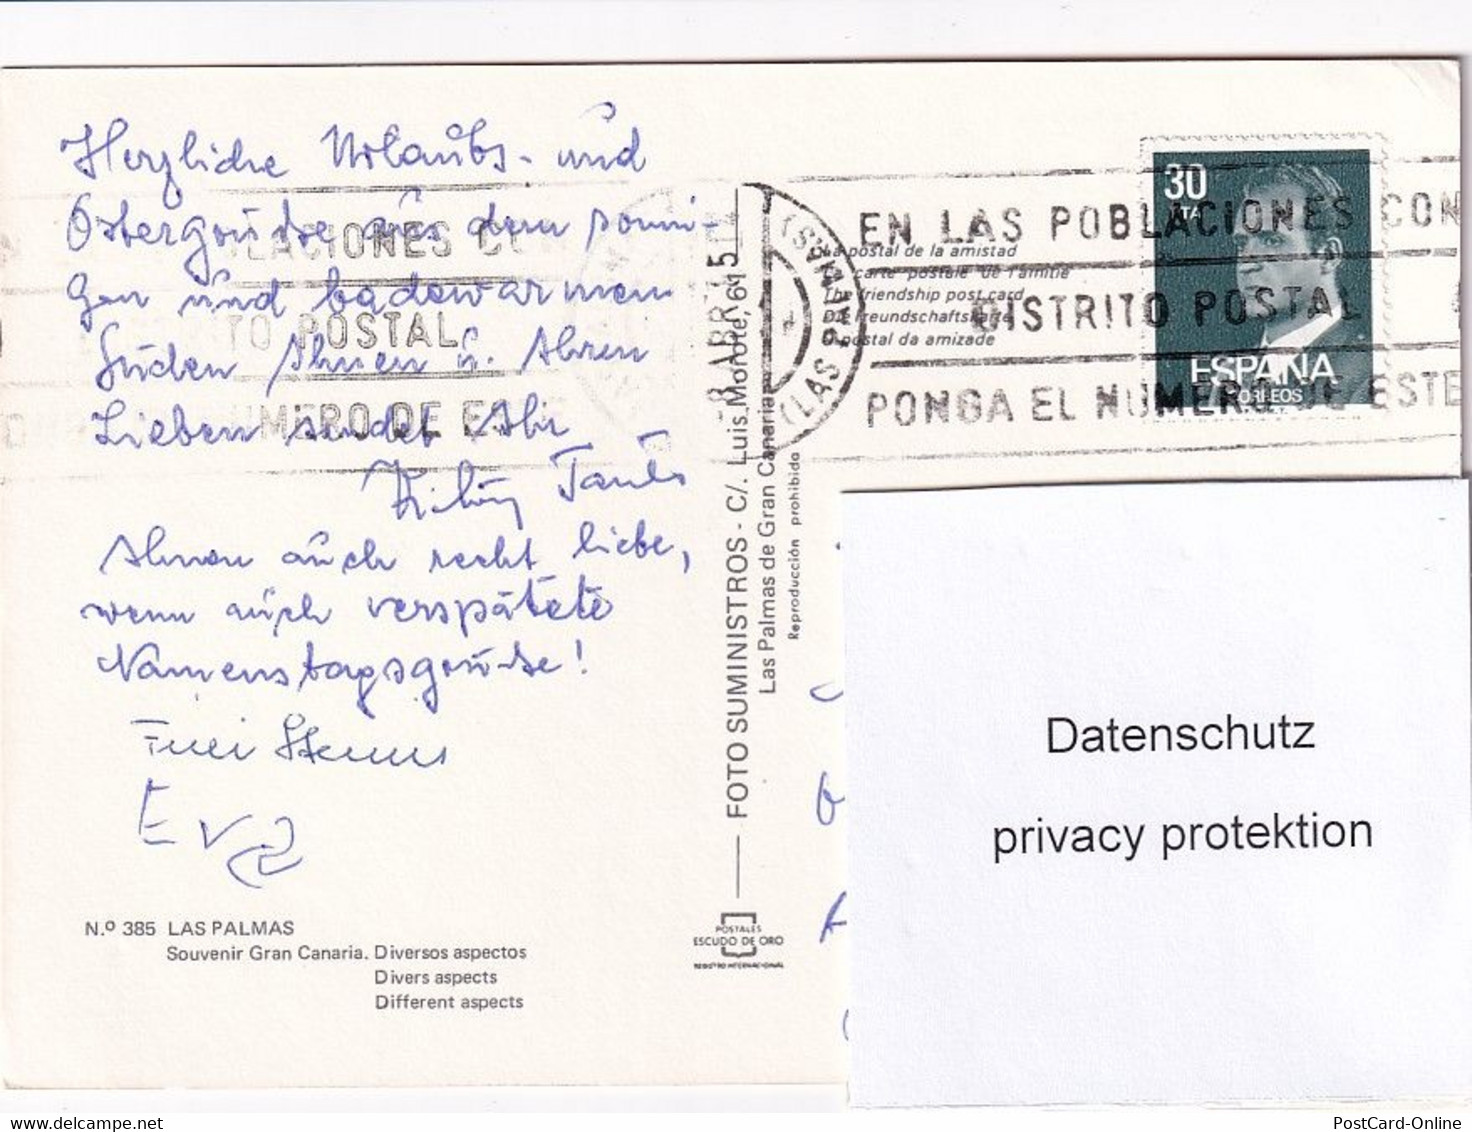 Herzliche Urlaubs- und
Ostergrüße aus dem sonni-
gen und badewarmen
Süden Ihnen u. Ihren
Lieben sendet Ihr
Ihnen auch recht liebe,
wenn auch verspätete
Namenstagsgrüße!
Eva
N.º 385 LAS PALMAS
Souvenir Gran Canaria. Diversos aspectos
Divers aspects
Different aspects
FOTO SUMINISTROS - C/. Luis Morote, 61
Las Palmas de Gran Canaria
Reproducción prohibida
POSTALES
ESCUDO DE ORO
REGISTRO INTERNACIONAL
LACIONES CO
TO POSTAL
UMERO DE ES
(LAS PALMAS)
EN LAS POBLACIONES CON
DISTRITO POSTAL
PONGA EL NUMERO DE ESTE
La postal de la amistad
La carte postale de l'amitié
The friendship post card
Die Freundschaftskarte
O postal da amizade
30
PTA
ESPAÑA
CORREOS
Datenschutz
privacy protektion
PostCard-Online